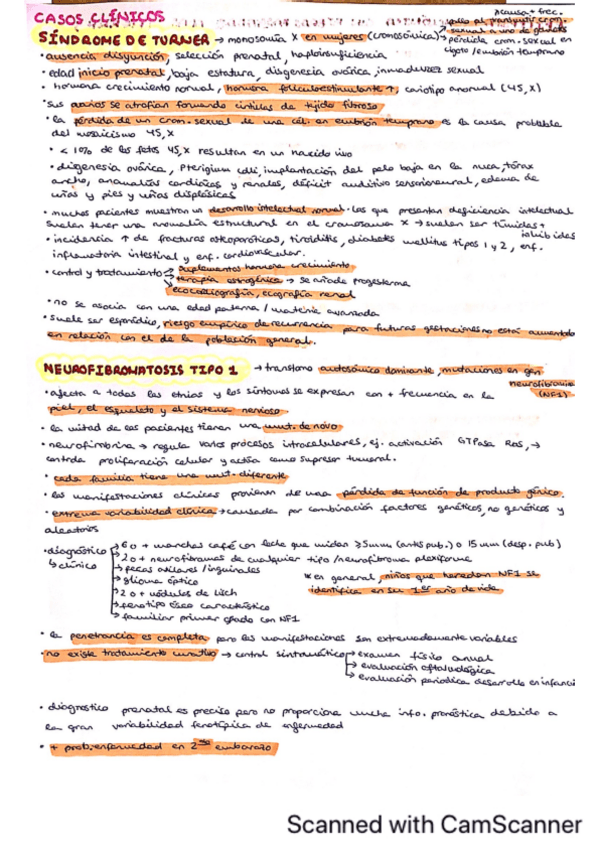 CASOS CLÍNICOS
*causa + frec.
fallo al transmitir crom.
sexual a uno de gametos
SÍNDROME DE TURNER → monosomía X en mujeres (cromosómica)
pérdida crom. sexual en
cigoto / embrión temprano
• ausencia disyunción, selección prenatal, haploinsuficiencia
• edad inicio prenatal, baja estatura, disgenesia ovárica, inmadurez sexual
• hormona crecimiento normal, hormona foliculoestimulante ↑, cariotipo anormal (45, X)
• sus ovarios se atrofian formando cintillas de tejido fibroso
• la pérdida de un crom. sexual de una cél. en embrión temprano es la causa probable
del mosaicismo 45, X
• < 10% de los fetos 45, X resultan en un nacido vivo
• digenesia ovárica, pterigium colli, implantación del pelo baja en la nuca, tórax
ancho, anomalías cardiacas y renales, déficit auditivo sensorioneural, edema de
uñas y pies y uñas displásicas
• muchos pacientes muestran un desarrollo intelectual normal. Los que presentan deficiencia intelectual
suelen tener una anomalía estructural en el cromosoma X → suelen ser tímidas +
inhibidas
• incidencia ↑ de fracturas osteoporóticas, tiroiditis, diabetes mellitus tipos 1 y 2, enf.
inflamatoria intestinal y enf. cardiovascular.
• control y tratamiento
suplementos hormona crecimiento
terapia estrogénica → se añade progesterona
ecocardiografía, ecografía renal
• no se asocia con una edad paterna / materna avanzada
• suele ser esporádico, riesgo empírico de recurrencia para futuras gestaciones no está aumentado
en relación con el de la población general.
NEUROFIBROMATOSIS TIPO 1 → trastorno autosómico dominante, mutaciones en gen
neurofibromina
(NF1)
• afecta a todas las etnias y los síntomas se expresan con + frecuencia en la
piel, el esqueleto y el sistema nervioso.
• la mitad de los pacientes tienen una mut. de novo
• neurofimbrina → regula varios procesos intracelulares, ej. activación GTPasa Ras, →
controla proliferación celular y actúa como supresor tumoral.
• cada familia tiene una mut. diferente
• las manifestaciones clínicas provienen de una pérdida de función de producto génico.
• extrema variabilidad clínica → causada por combinación factores genéticos, no genéticos y
aleatorios
• diagnóstico
↳ clínico
6 o + manchas café con leche que midan ≥5mm (antes pub.) o 15 mm (desp. pub)
2 o + neurofibromas de cualquier tipo / neurofibroma plexiforme
pecas axilares / inguinales
glioma óptico
2 o + nódulos de Lisch
fenotipo óseo característico
familiar primer grado con NF1
*en general, niños que heredan NF1 se
identifica en su 1er año de vida
• la penetrancia es completa pero las manifestaciones son extremadamente variables
• no existe tratamiento curativo → control sintomático
examen físico anual
evaluación oftalmológica
evaluación periódica desarrollo en infanci
• diagnóstico prenatal es preciso pero no proporciona mucha info. pronóstica debido a
la gran variabilidad fenotípica de enfermedad
• + prob. enfermedad en 2do embarazo
Scanned with CamScanner